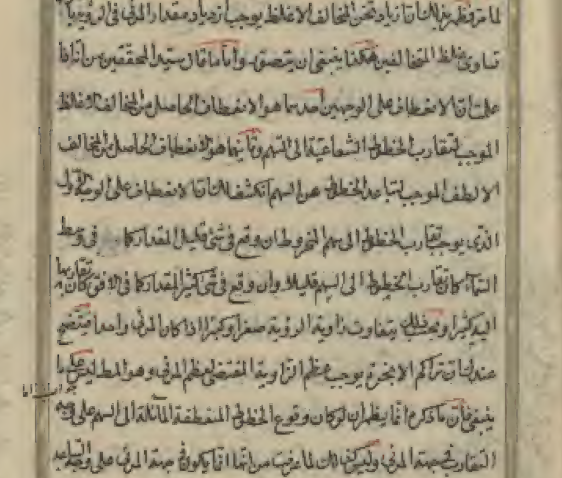 لما مر وظهر بذلك ان زيادة ثخن المخالف الاغلظ يوجب ازدياد مقدار المرئى فى الرؤية
تساوى غلظ المتخالفين هكذا ينبغى ان يتصور واما ما قال سيد المحققين من انا اذا
على ان الانعطاف على الوجهين احدهما هو الانعطاف الحاصل من المخالف الاغلظ
الموجب لتقارب الخطوط الشعاعية الى السهم وثانيهما هو الانعطاف الحاصل من المخالف
الالطف الموجب لتباعد الخطوط عن السهم انكشف لك ان الانعطاف على الوجه الاول
الذى يوجب تقارب الخطوط الى سهم المخروط ان وقع فى شئ قليل المقدار كما فى وسط
السماء كان تقارب الخطوط الى السهم قليلا وان وقع فى شئ كثير المقدار كما فى الافق كان تقاربها
اليه كثيرا وبحسب ذلك يتفاوت زاوية الرؤية صغرا وكبرا اذا كان المرئى واحدا فيتضح
عندك ان تراكم الابخرة يوجب عظم الزاوية المقتضى لعظم المرئى وهو المط
ينبغى فان ما ذكره انما يظهر ان لو كان وقوع الخطوط المنعطفة المائلة الى السهم على
التقارب فى جهة المرئى وليس كذلك لما عرفت من انها انما يكون فى جهة المرئى على وجه التباعد